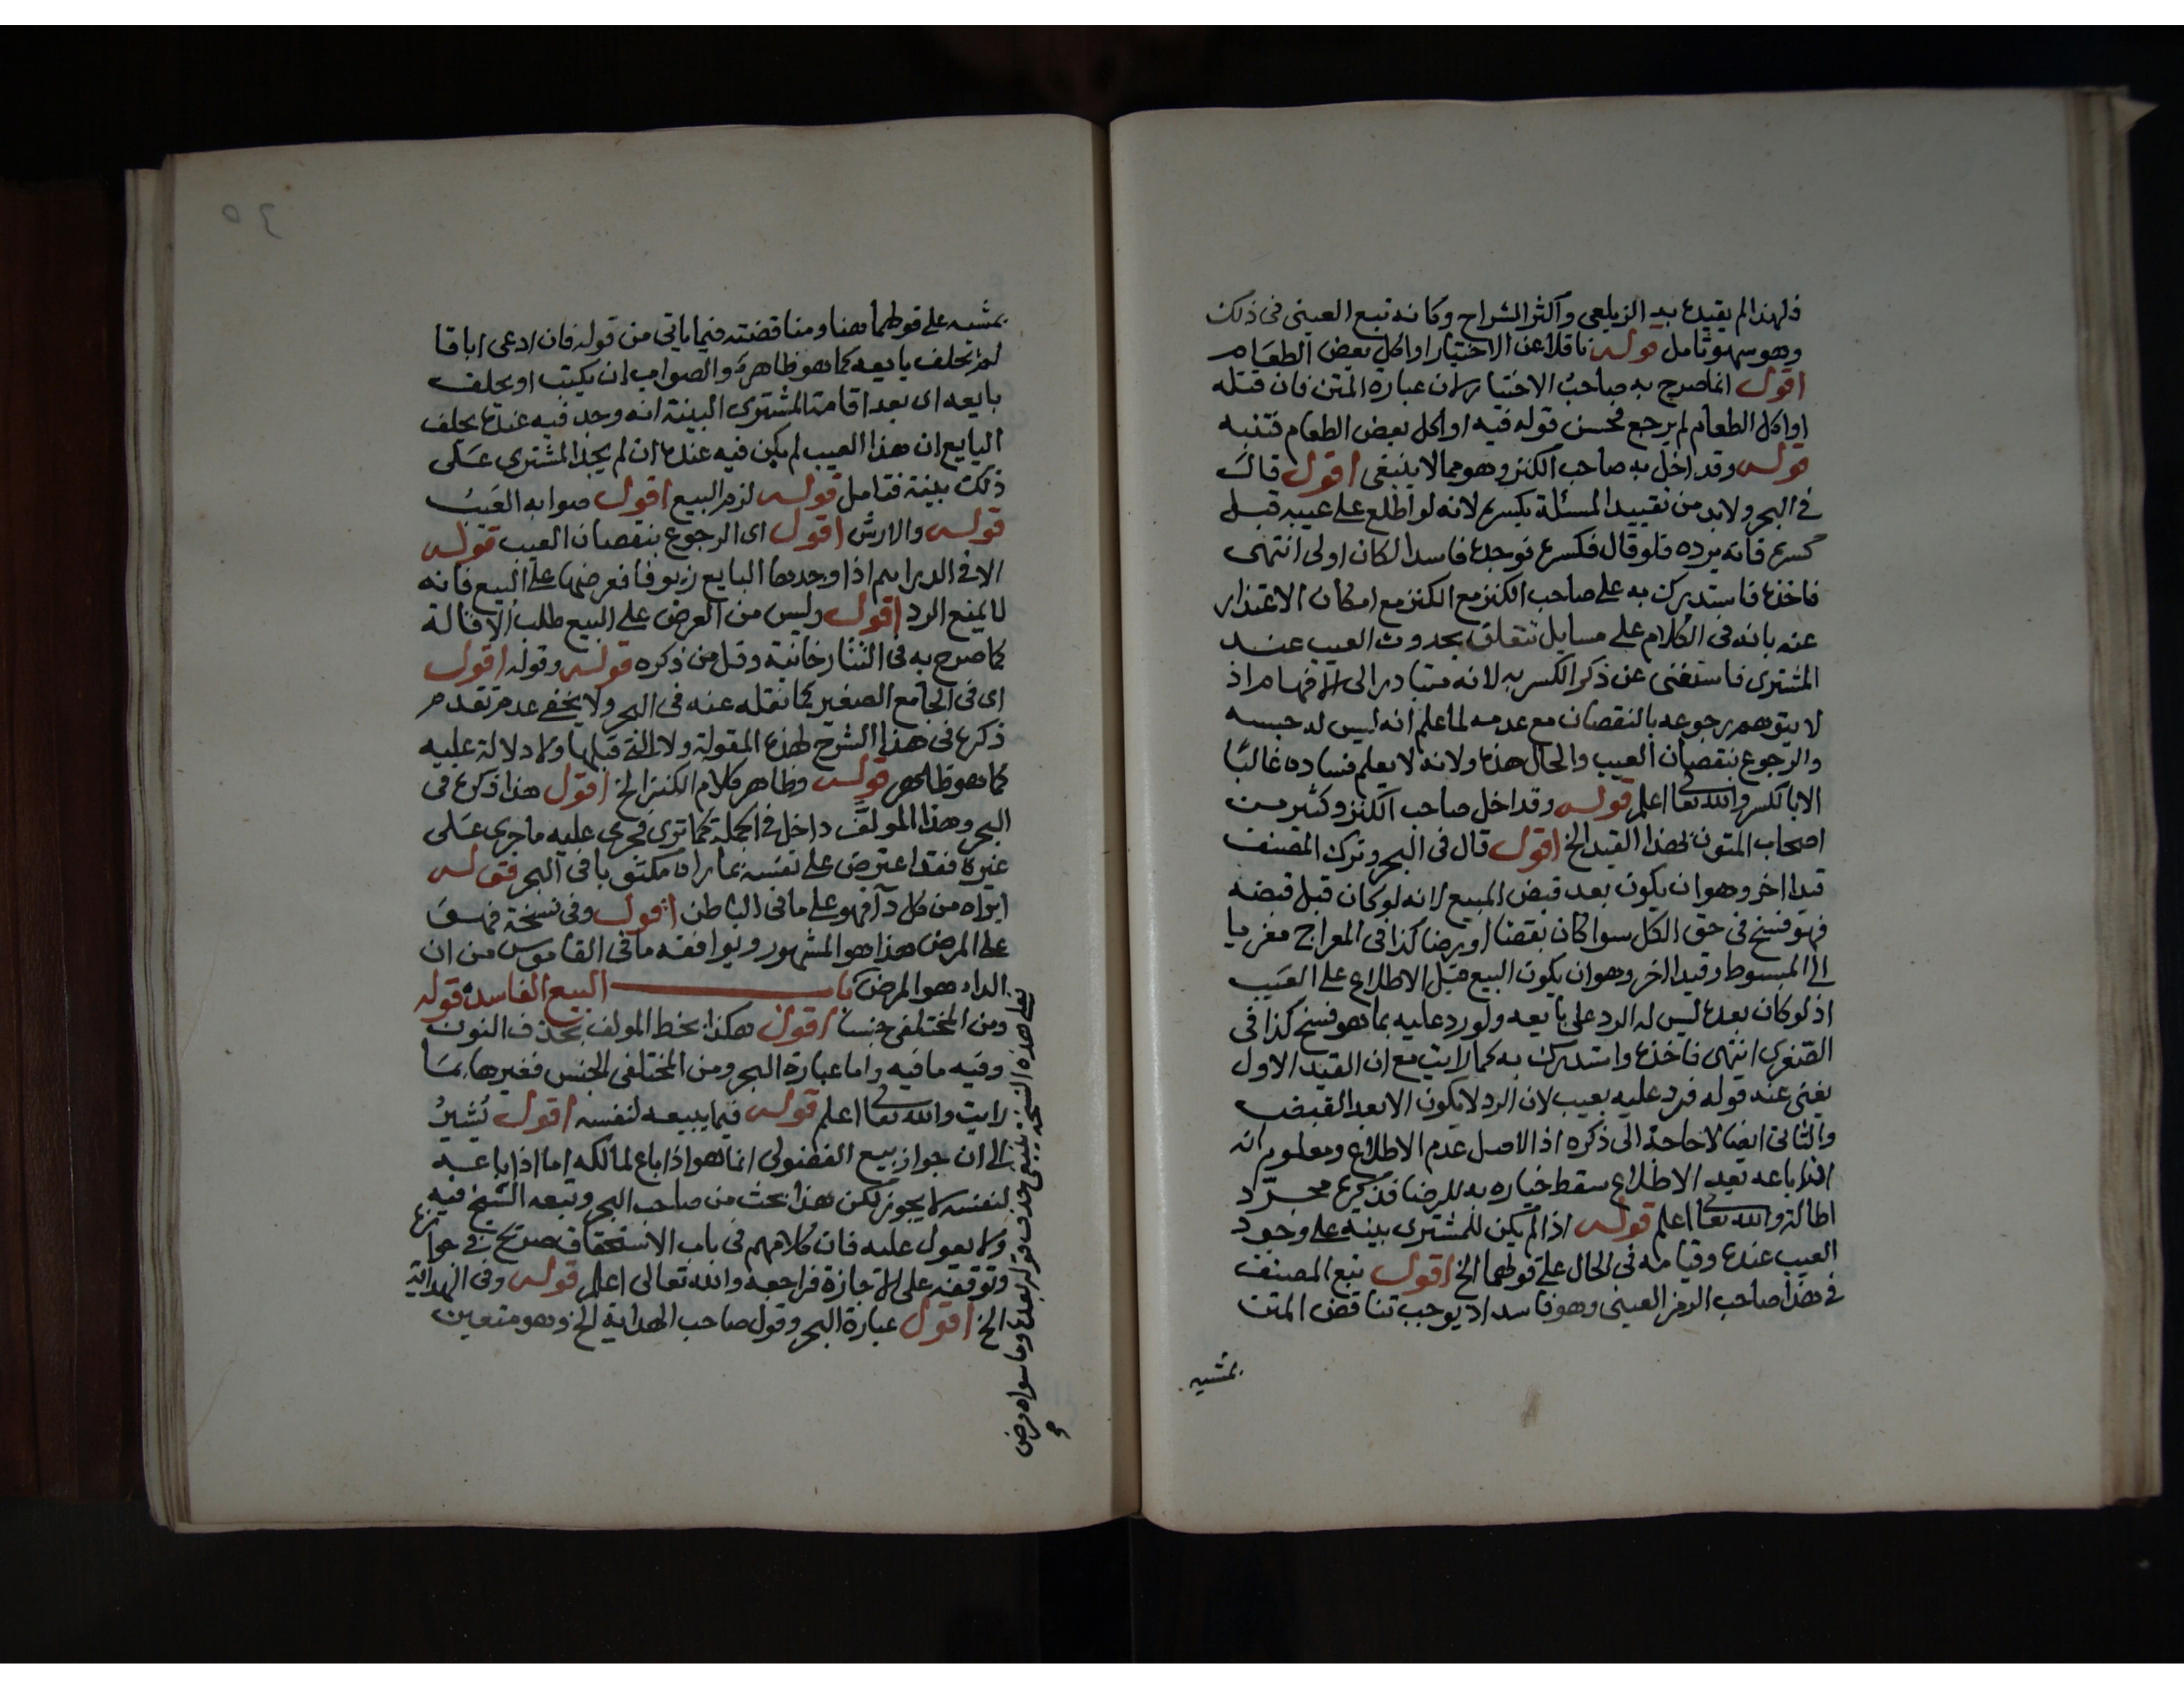 فلهذا لم يقيده به الزيلعي واكثر الشراح وكانه تبع العيني في ذلك
وهو سهو تامل قوله ناقلا عن الاختيار او اكل بعض الطعام
اقول انما صرح به صاحب الاختيار لان عبارة المتن فان قتله
او اكل الطعام لم يرجع فحسن قوله فيه او اكل بعض الطعام فتنبه
قوله وقد اخل به صاحب الكنز وهو مما لا ينبغي اقول قال
في البحر ولا بد من تقييد المسئلة بكسره لانه لو اطلع على عيبه قبل
كسره فانه يرده فلو قال فكسره فوجده فاسدا لكان اولى انتهى
فاخذه فاستدرك به على صاحب الكنز مع الكنز مع امكان الاعتذار
عنه بانه في الكلام على مسايل تتعلق بحدوث العيب عند
المشتري فاستغنى عن ذكر الكسر به لانه متبادر الى الافهام اذ
لا يتوهم رجوعه بالنقصان مع عدمه لما علم انه ليس له حبسه
والرجوع بنقصان العيب والحال هذه ولانه لا يعلم فساده غالبا
الا بالكسر والله تعالى اعلم قوله وقد اخل صاحب الكنز وكثير من
اصحاب المتون بهذا القيد الخ اقول قال في البحر وترك المصنف
قيدا اخر وهو ان يكون بعد قبض المبيع لانه لو كان قبل قبضه
فهو فسخ في حق الكل سوا كان بقضا او برضا كذا في المعراج معزيا
الى المبسوط وقيدا اخر وهو ان يكون البيع قبل الاطلاع على العيب
اذ لو كان بعده ليس له الرد على بايعه ولو رد عليه بما هو فسخ كذا في
الصغرى انتهى فاخذه واستدرك به كما رايت مع ان القيد الاول
يغني عنه قوله فرد عليه بعيب لان الرد لا يكون الا بعد القبض
والثاني ايضا لا حاجة الى ذكره اذ الاصل عدم الاطلاع ومعلوم انه
اذا باعه بعد الاطلاع سقط خياره به للرضا فذكره مجرد
اطالة والله تعالى اعلم قوله اذا لم يكن للمشتري بينه على وجود
العيب عنده وقيامه في الحال على قولهما الخ اقول تبع المصنف
في هذا صاحب الرمز العيني وهو فاسد اذ يوجب تناقض المتن
بمشيه
٥٤
بمشيه على قولهما هنا ومناقضته فيما ياتي من قوله فان ادعى اباقا
لم يحلف بايعه كما هو ظاهره والصواب ان يكتب او يحلف
بايعه اى بعد اقامة المشتري البينة انه وجد فيه عنده يحلف
البايع ان هذا العيب لم يكن فيه عنده ان لم يجد المشتري على
ذلك بينة فتامل قوله لزم البيع اقول صوابه العيب
قوله والارش اقول اى الرجوع بنقصان العيب قوله
الا في الدراهم اذا وجدها البايع زيوفا فعرضها على البيع فانه
لا يمنع الرد اقول وليس من العرض على البيع طلب الاقالة
كما صرح به في التتارخانية وقل من ذكره قوله وقوله اقول
اى في الجامع الصغير كما نقله عنه في البحر ولا يخفى عدم تقدم
ذكره في هذا الشرح لهذه المقولة ولا التي قبلها ولا دلالة عليه
كما هو ظاهر قوله وظاهر كلام الكنز الخ اقول هذا ذكره في
البحر وهذا المولف داخل في الجملة كما ترى فجرى عليه ما جرى على
غيره فقد اعترض على نفسه بما راه مكتوبا في البحر فقوله
ابراه من كل دآ فهو على ما في الباطن اقول وفي نسخة فهو
على المرض هذا هو المشهور ويوافقه ما في القاموس من ان
الداء هو المرض باب البيع الفاسد قوله
ومن المختلفي جنسا اقول هكذا بخط المولف بحذف النون
وفيه ما فيه واما عبارة البحر ومن المختلفي الجنس فغيرها بما
رايت والله تعالى اعلم قوله فيما يبيعه لنفسه اقول يشير
الى ان جواز بيع الفضولي انما هو اذا باع لمالكه اما اذا باعه
لنفسه لا يجوز لكن هذا بحث من صاحب البحر وتبعه الشيخ فيه
ولا يعول عليه فان كلامهم في باب الاستحقاق صريح في جوازه
وتوقفه على الاجازة فراجعه والله تعالى اعلم قوله وفي الهداية
الخ اقول عبارة البحر وقول صاحب الهداية الخ وهو متعين
على هذه النسخة ينبغي حذف قوله بعده وما سواه مرض